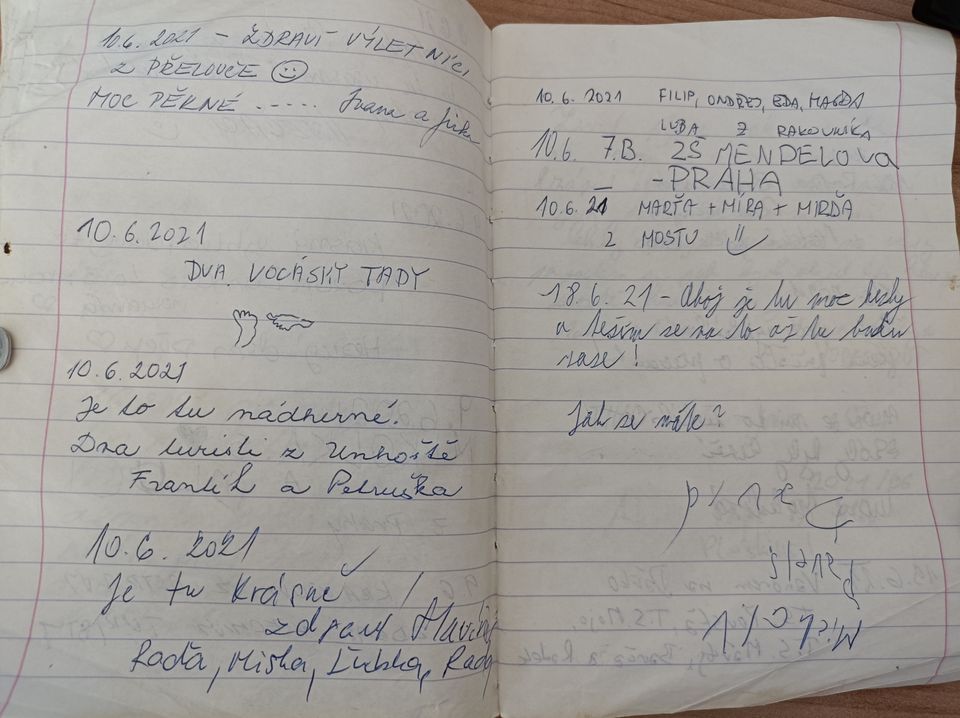 10.6. 2021 - ZDRAVÍ VÝLETNÍCI
Z PŘELOUČE
MOC PĚKNÉ ..... Ivana a Jirka
10.6.2021
DVA VOCÁSKY TADY
10.6.2021
Je to tu nádherné.
Dva turisti z Unhoště
Frantík a Petruška
10.6. 2021
Je tu krásně
zdraví
Raďa, Miska, Lubka, Rada
10.6.2021 FILIP, ONDŘEJ, EDA, MAGDA
LUBA Z RAKOVNÍKA
10.6. 7.B. ZŠ MENDELOVA
- PRAHA
10.6.21 MARŤA + MÍRA + MIRĎA
Z MOSTU
18.6.21 - Ahoj je tu moc hezky
a těším se na to až tu budu
zase!
Jak se máte?